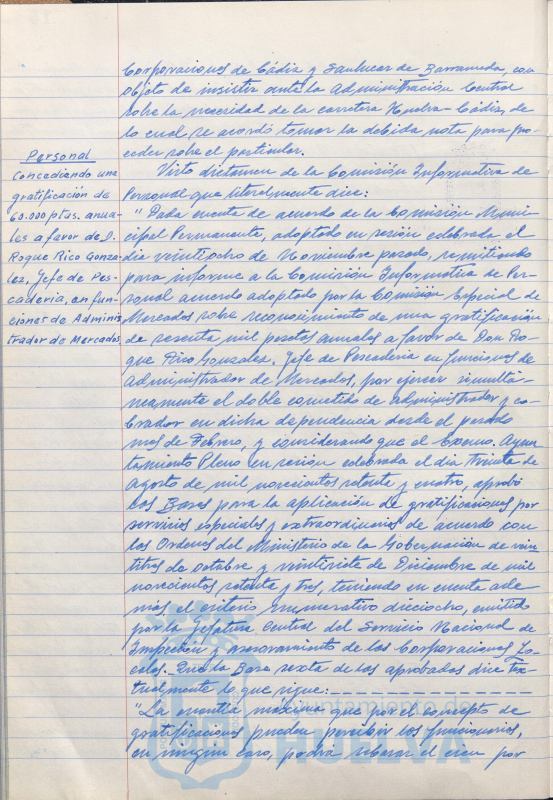 Corporaciones de Cádiz y Sanlucar de Barrameda, con
objeto de insistir ante la Administración Central
sobre la necesidad de la carretera Huelva-Cádiz, de
lo cual se acordó tomar la debida nota para pro-
ceder sobre el particular.
Personal
Concediendo una
gratificación de
60.000 ptas. anua-
les a favor de D.
Roque Rico Gonza-
lez, Jefe de Pes-
cadería, en fun-
ciones de Adminis-
trador de Mercados
Visto dictamen de la Comisión Informativa de
Personal que literalmente dice:
"Dada cuenta de acuerdo de la Comisión Muni-
cipal Permanente, adoptado en sesión celebrada el
día veintiocho de Noviembre pasado, remitiendo
para informe a la Comisión Informativa de Per-
sonal acuerdo adoptado por la Comisión Especial de
Mercados sobre reconocimiento de una gratificación
de sesenta mil pesetas anuales a favor de Don Ro-
que Rico Gonzalez, Jefe de Pescadería en funciones de
Administrador de Mercados, por ejercer simultá-
neamente el doble cometido de administrador y co-
brador en dicha dependencia desde el pasado
mes de Febrero, y considerando que el Excmo. Ayun-
tamiento Pleno en sesión celebrada el día treinta de
Agosto de mil novecientos setenta y cuatro, aprobó
las Bases para la aplicación de gratificaciones por
servicios especiales y extraordinarios de acuerdo con
las Ordenes del Ministerio de la Gobernación de vein-
titres de octubre y veintisiete de Diciembre de mil
novecientos setenta y tres, teniendo en cuenta ade-
más, el criterio enumerativo dieciocho, emitido
por la Jefatura Central del Servicio Nacional de
Inspección y asesoramiento de las Corporaciones Lo-
cales. Que la Base sexta de las aprobadas dice tex-
tualmente lo que sigue:
"La cuantía máxima que por el concepto de
gratificaciones puedan percibir los funcionarios,
en ningún caso, podrá rebasar el cien por
Ayuntamiento de
HUELVA